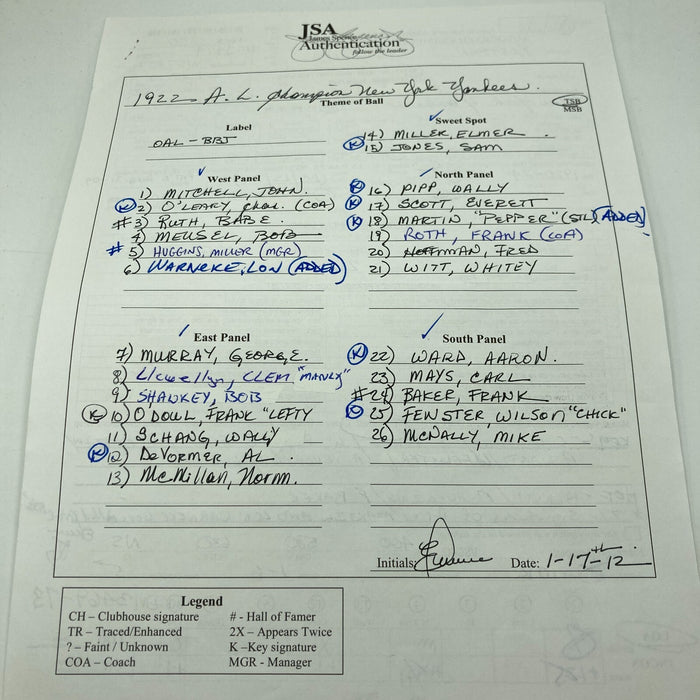 JSA
James Spence
Authentication
follow the leader
1922 A. L. Champion New York Yankees.
Theme of Ball
TSB
MSB
Label
OAL - BBJ
Sweet Spot
14) MILLER, ELMER
K 15) JONES, SAM
West Panel
1) MITCHELL, JOHN.
K 2) O'LEARY, Chas. (COA)
# 3) RUTH, BABE.
4) MEUSEL, BOB
# 5) HUGGINS, MILLER (MGR)
6) WARNEKE, LON (ADDED)
North Panel
K 16) PIPP, WALLY
K 17) SCOTT, EVERETT
K 18) MARTIN "PEPPER" (STL) (ADDED)
19) ROTH, FRANK (COA)
20) HOFFMAN, FRED
21) WITT, WHITEY
East Panel
7) MURRAY, GEORGE.
8) Llewellyn, CLEM "MANLY"
9) SHAWKEY, BOB
K 10) O'DOUL, FRANK "LEFTY
11) SCHANG, WALLY
K 12) DeVORMER, AL.
13) McMillan, Norm.
South Panel
K 22) WARD, AARON.
23) MAYS, CARL
# 24) BAKER, FRANK
K 25) FEWSTER WILSON "CHICK"
26) McNALLY, MIKE
Initials: Date: 1-17th-12
Legend
CH – Clubhouse signature # - Hall of Famer
TR – Traced/Enhanced 2X – Appears Twice
? – Faint / Unknown K –Key signature
COA – Coach MGR - Manager